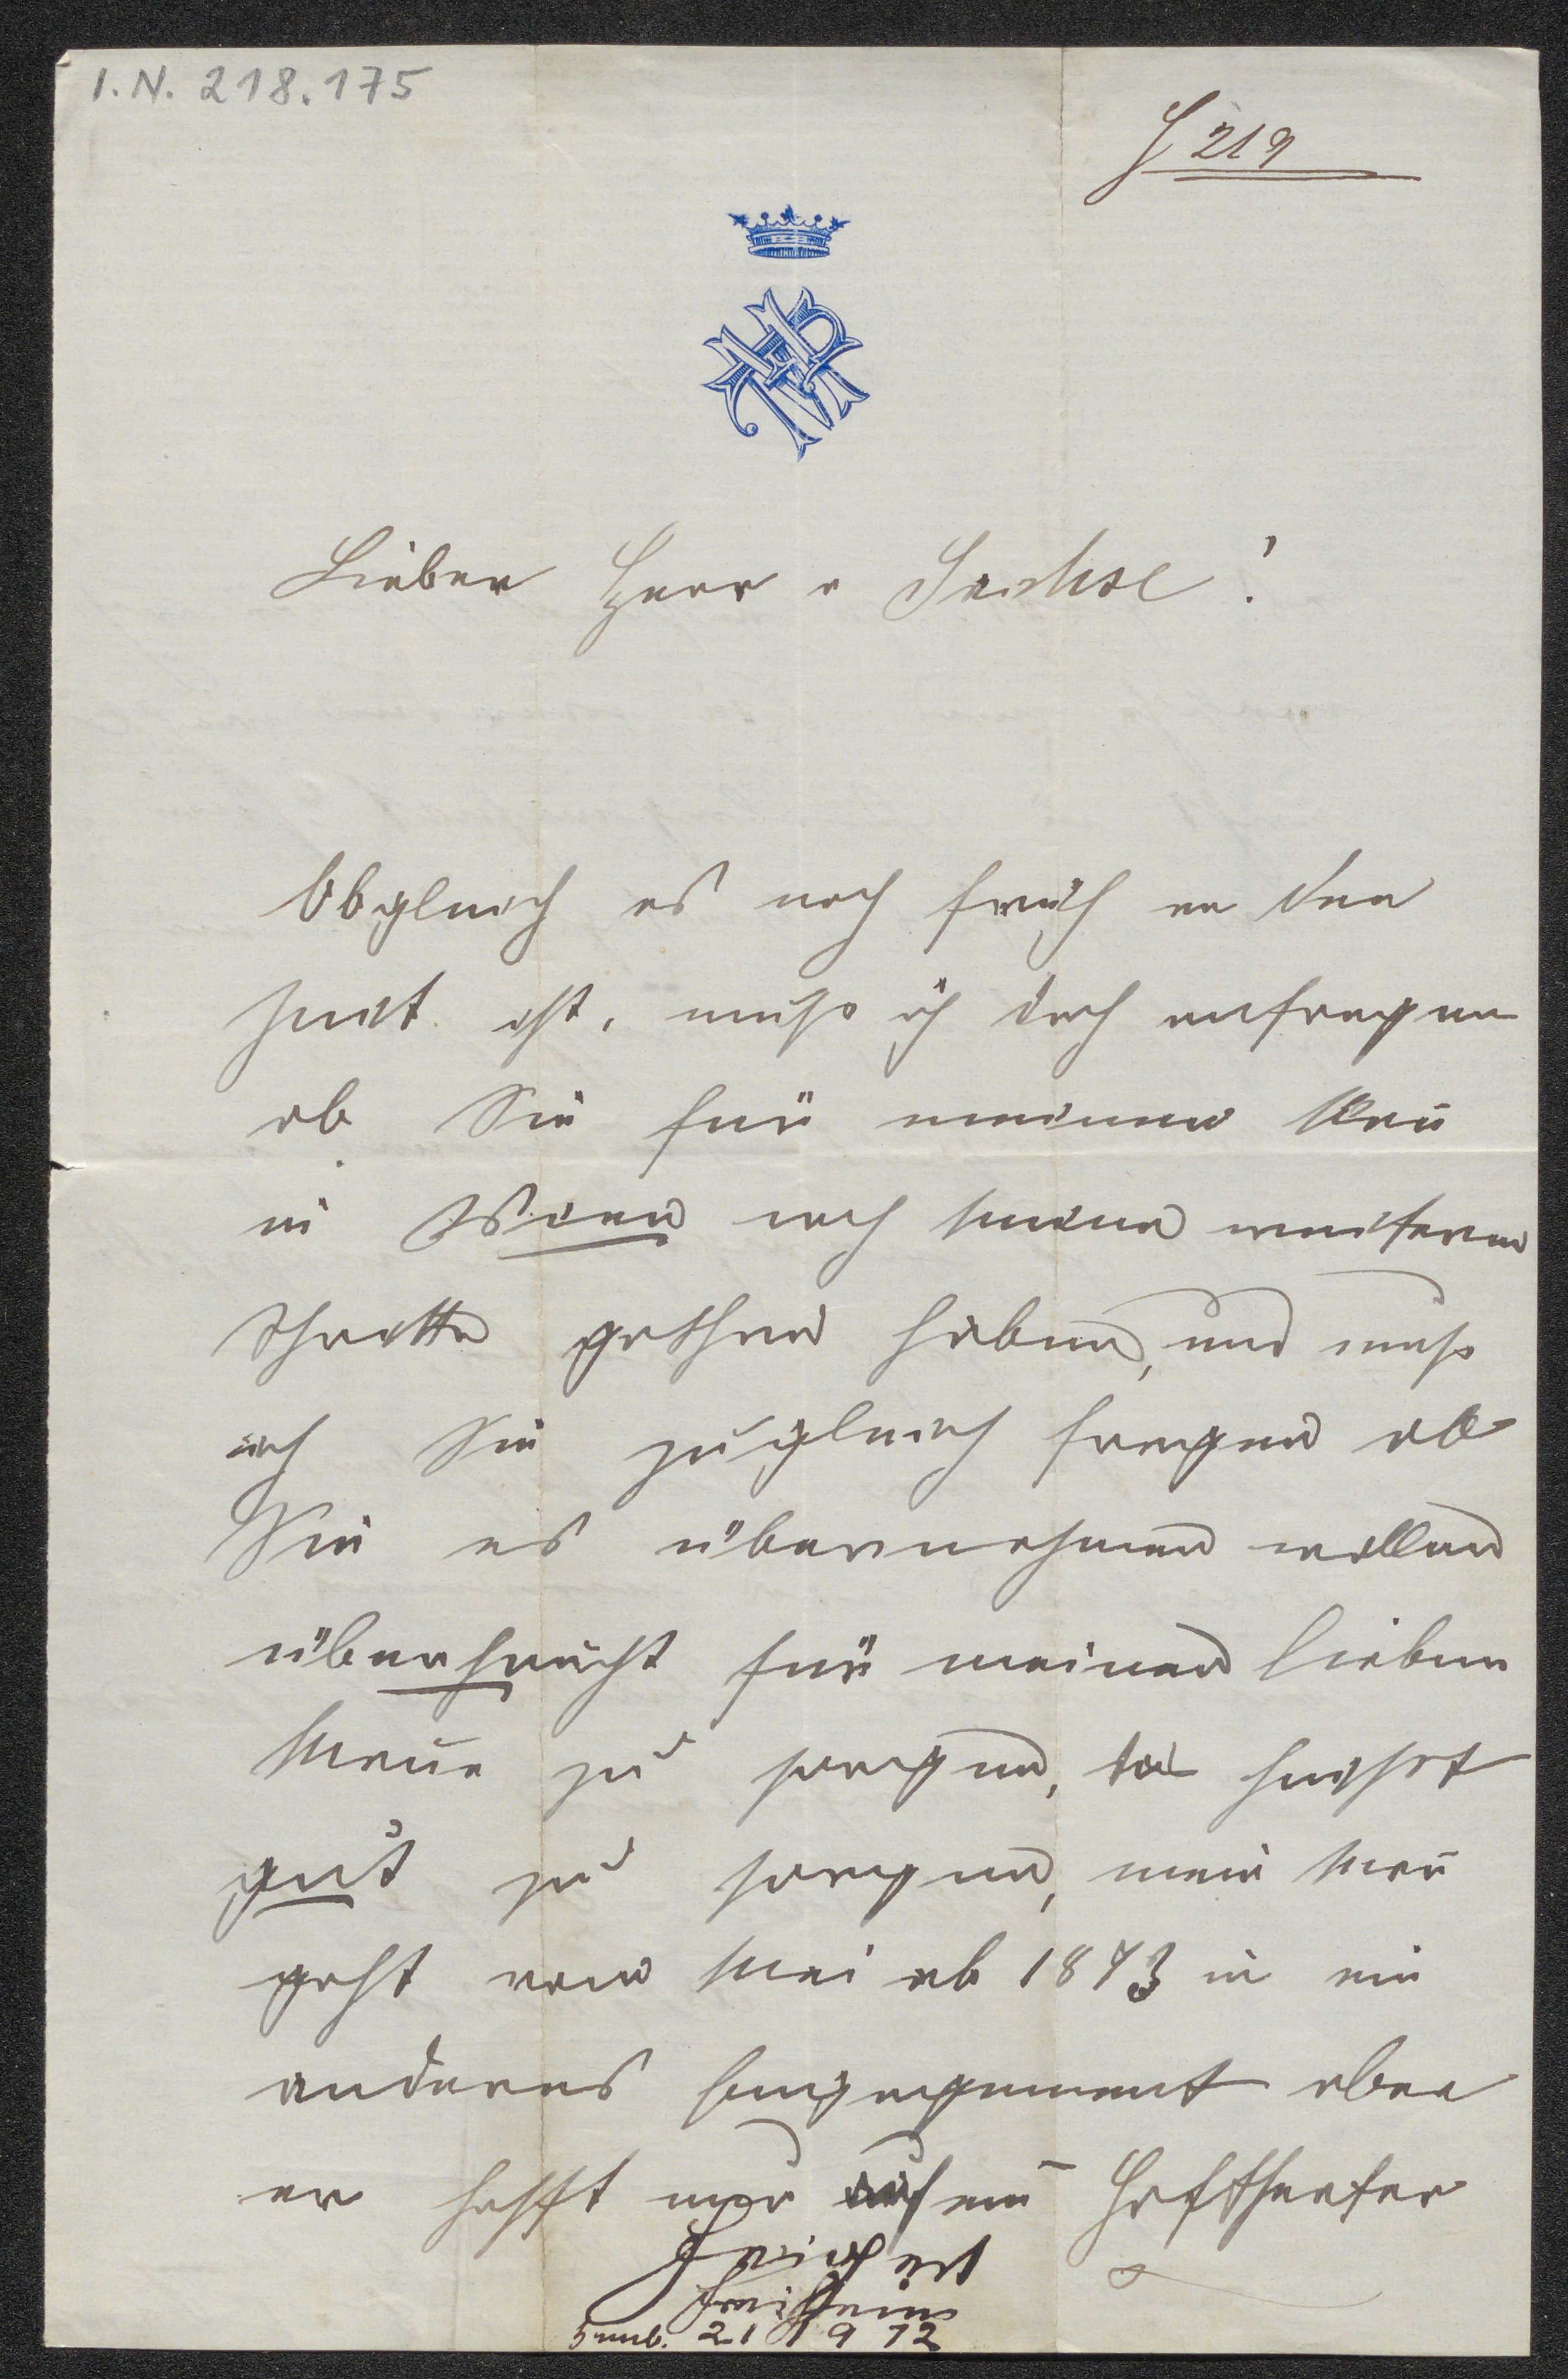 I. N. 218.175
J 219
Lieber Herr v Sachse!
Obgleich es noch früh an der
Zeit ist, muß ich doch anfragen
ob Sie für meinen Man̄
in Wien noch keine weiteren
Schritte gethan haben, und muß
ich Sie zugleich fragen ob
Sie es übernehmen wollen
überhaupt für meinen lieben
Mann zu sorgen, das heißt
gut zu sorgen, mein Man̄
geht vom Mai ab 1873 in ein
anderes Engagement aber
er hofft nur auf ein Hoftheater
21 1 9 72